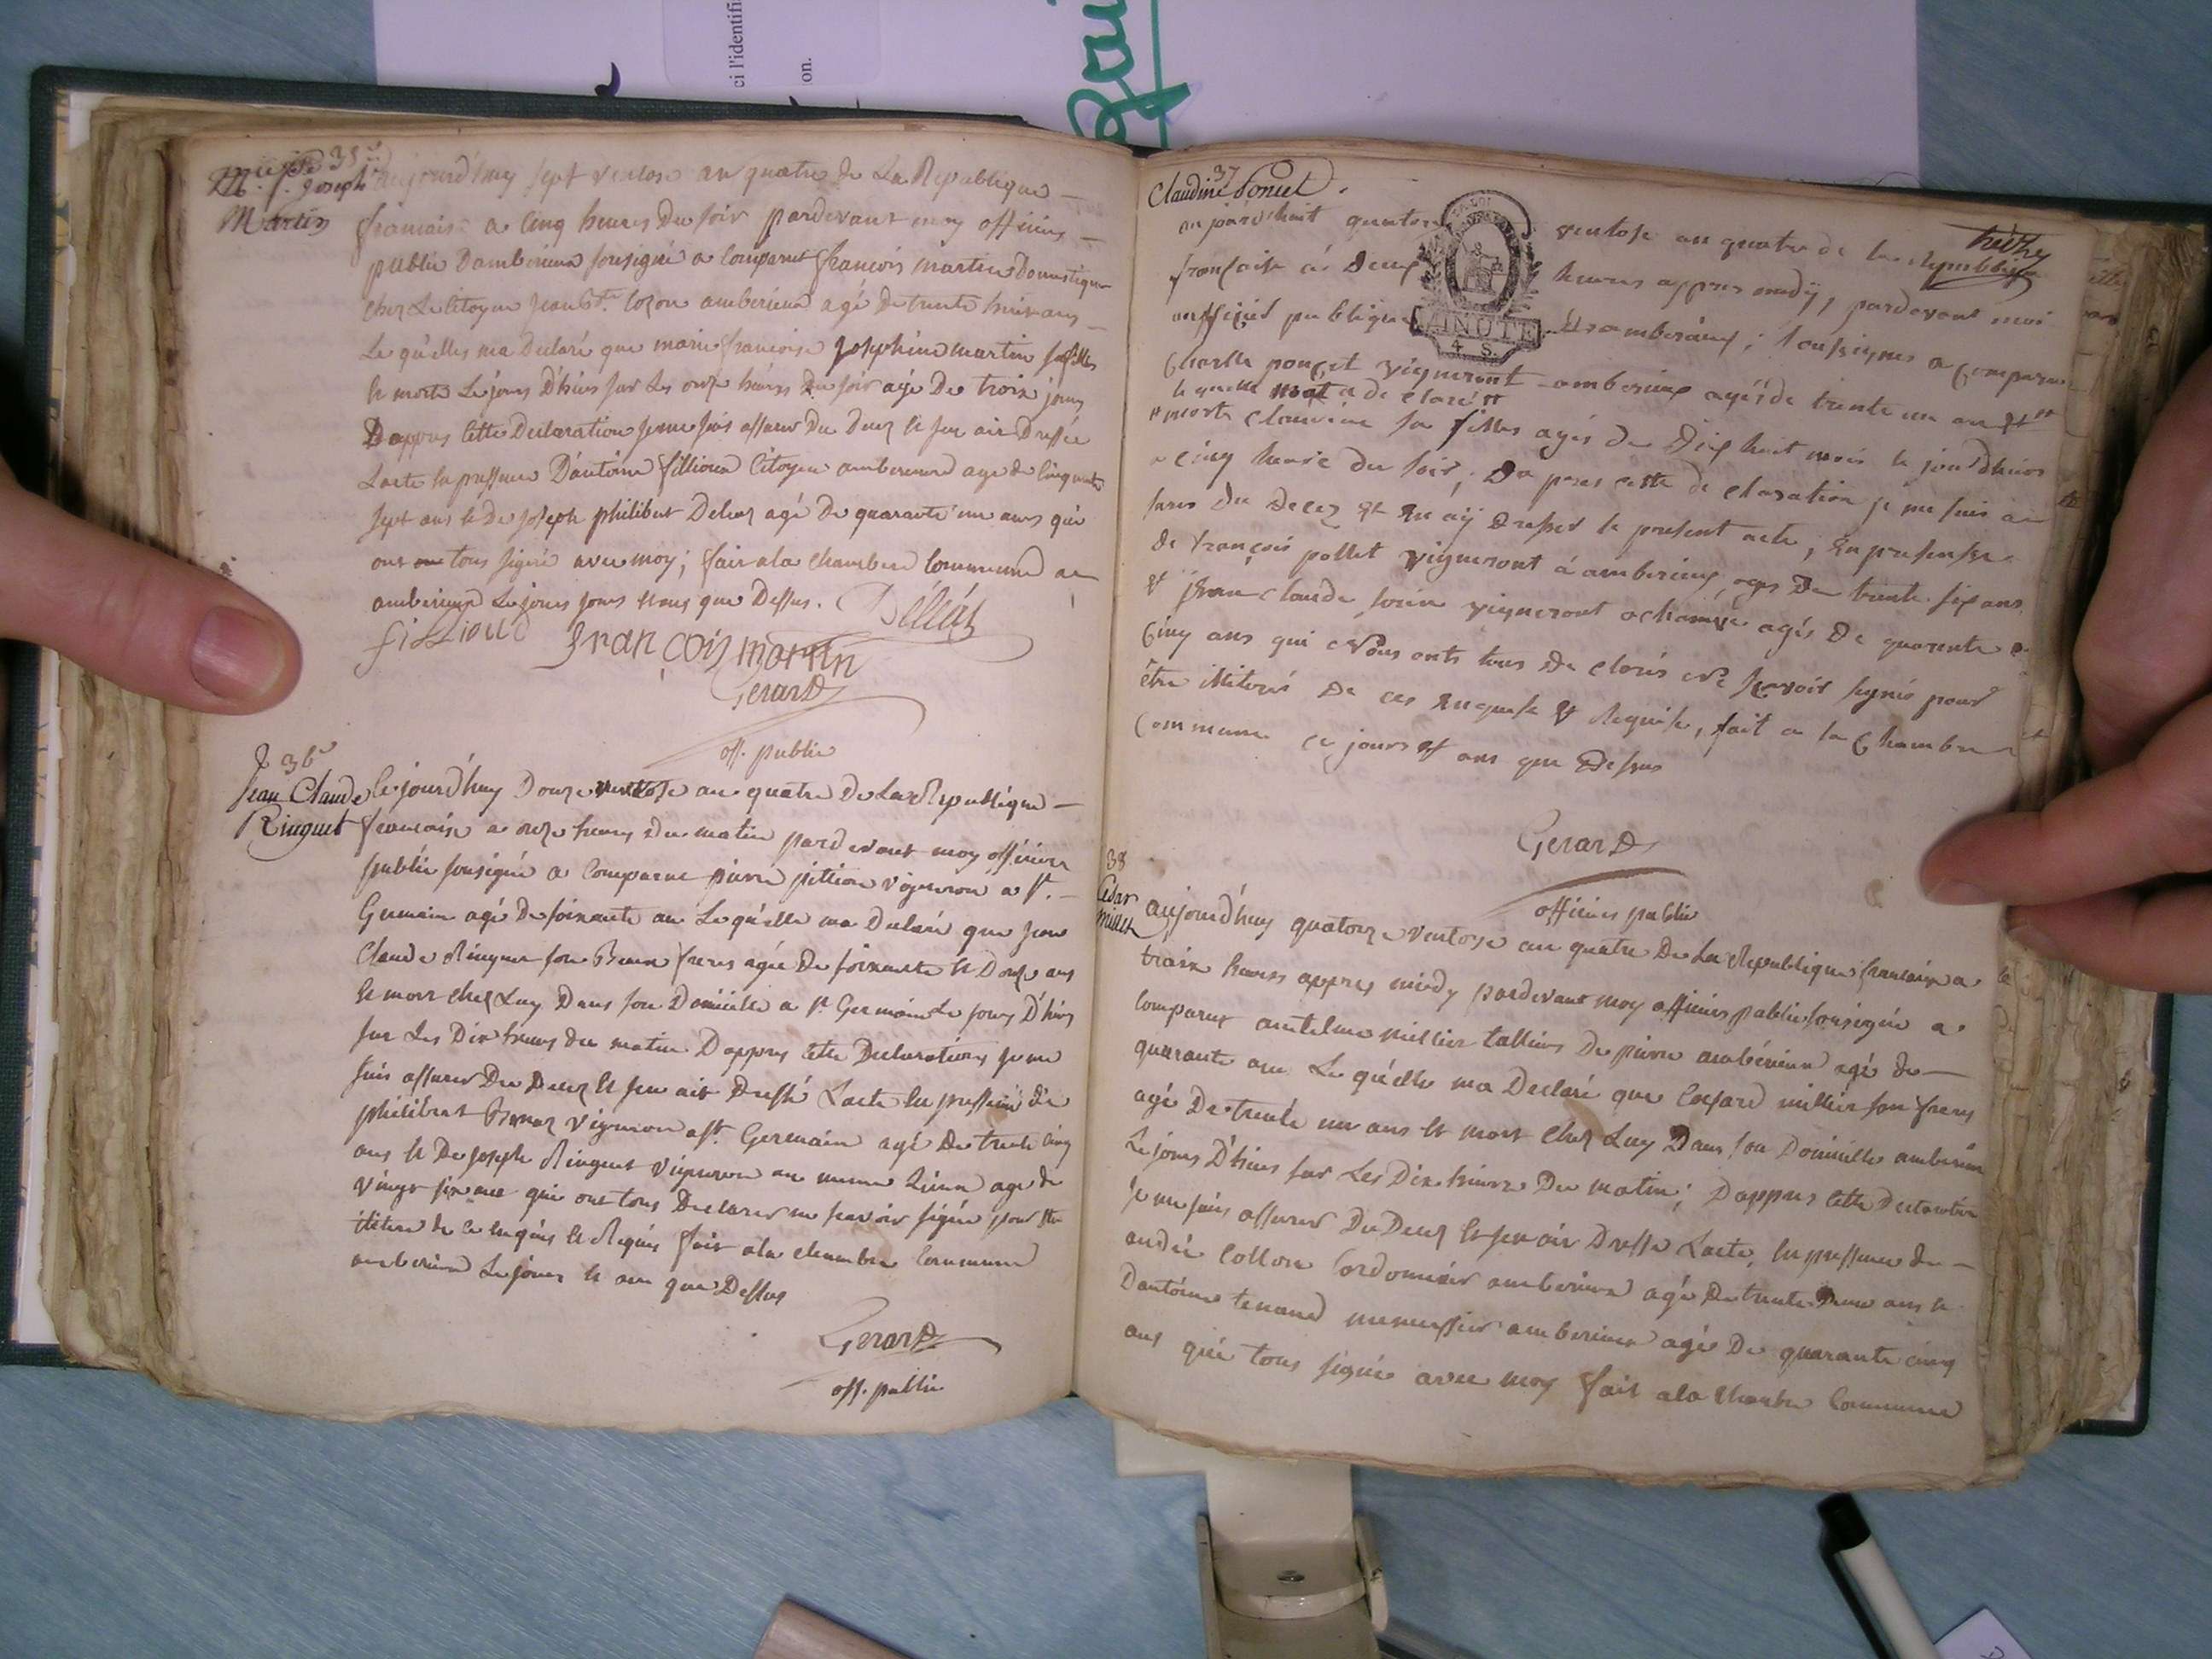 ci l'identifi
on.
35e
M. f. Joseph
Martin
aujourd'huy sept ventose an quatre de La Republique
francaise a Cinq heures Du soir pardevant moy officier
public Damberieux sousigné a Comparut francois martin Domestique
chez Le Citoyen Jean Bte. Cozon amberieux agé De trente huit ans
Le quelles ma Declaré que marie francoise Josephine martin sa fille
et morte Le jours D'hier sur Les onze heures Du soir agé De trois jours
Dappres Cette Declaration je me suis assurer Du Decez et jen ait Dressée
Lacte en pressence D'antoine fillioud Citoyen amberieux age de Cinquante
sept ans et De Joseph philibert Deleaz agé De quarante une ans qui
ont tous signé avec moy; fait a la Chambre Commune a
amberieux Le jours mois et ans que Dessus.
Deléaz
fillioud
francois martin
Gerard
off. public
36e
Jean Claude
Ringuet
Ce jourd'huy Douze ventose an quatre De La Republique
francaise a onze heures Du matin pardevant moy officier
public sousigné a Comparut pierre pittion vigneron a St.
Germain agé De soixante an Le quelle ma Declaré que jean
Claude Ringuet son Beaux freres agée De soixante et Douze ans
et mort chez Luy Dans son Domicille a St. Germain Le jours D'hier
sur Les Dix heures du matin Dappres Cette Declarations je me
suis assurer Du Decez et jen ait Dressé Lacte en pressence De
philibert vigneron a St. Germain agé De trente Cinq
ans et De Joseph Ringuet vigneron au meme Lieux age de
vingt six ans qui ont tous Declarer ne scavoir signée pour etre
iliterer de ce enquis et Requis fait a la Chambre Commune
amberieux Le jours et an que Dessus
Gerard
off. public
37
Claudine Poncet
treize
au jourdhuit quatorze ventose an quatre de la republique
française à Deux heures appres midÿ, pardevant moi
officier publique Dambérieux; soussignes a comparu
Charle ponçet vigneront amberieux agés de trente un an et
le quelle mat a de claré
morte claudine sa filles agés de Dix huit mois le jour dhier
a cinq heure du soir; Da pres cette de claration je me suis as
surer du Decez et en aÿ Dresser le present acte; En presense
de françois pollet vigneront à amberieux ages De trente six ans
et jean claude vigneront agés De quarente
Cinq ans qui Nous onts tous De clarés Ne scavoir signés pour
être illiterés De ces Enquise et Requise, fait a la Chambre
Commune ce jours et ans que Dessus
Gerard
officier public
38
Cesar
millet
aujourd'huy quatorze ventose an quatre De La Republique francaise a
troix heures appres midy pardevant moy officier public sousigné a
comparut antelme millier tallieur De pierre ambérieux agé de
quarante ans Le quelle ma Declaré que Cesard millier son freres
agé De trente un ans et mort chez Luy Dans son Domicille amberieux
Le jours D'hier sur Les Dix heures Du matin; Dappres Cette Declaration
je me suis assurer Du Decez et jen ait Dressé Lacte, en pressence de
andré Collon Cordonnier amberieux agé De trente Deux ans et
Dantoine tenand menuissier amberieux agé De quarante cinq
ans qui tous signée avec moy fait a la Chambre Commune